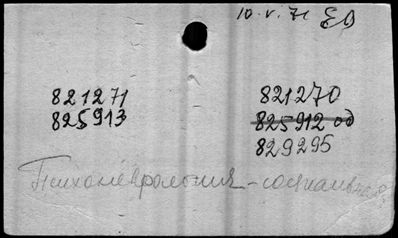 10.V.71 ЕД
821271
825913
821270
825912 од
829295
Психоневрология - социальная